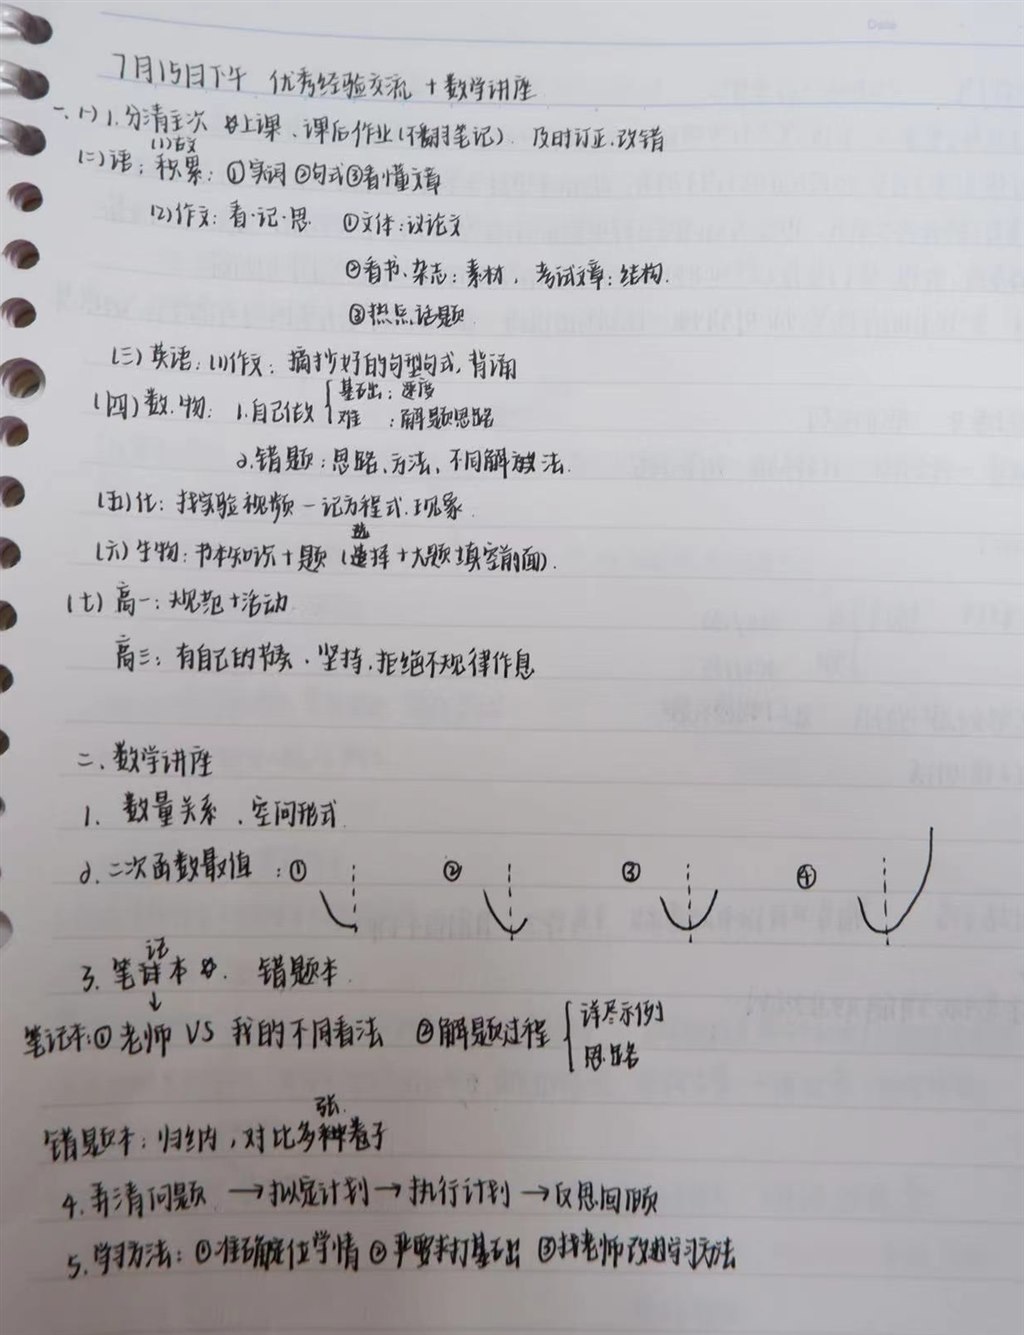 Date
7月15日下午 优秀经验交流 + 数学讲座
一、(一) 1. 分清主次 上课、课后作业(不翻笔记). 及时订正、改错
(二)语: (1)古文 积累: ①实词 ②句式 ③看懂文章
(2)作文: 看·记·思 ①文体: 议论文
②看书、杂志: 素材, 考试文章: 结构.
③热点话题
(三)英语: (1)作文: 摘抄好的句型句式, 背诵
(四)数.物: 1.自己做 { 基础: 速度
难 : 解题思路
2.错题: 思路、方法、不同解法.
(五)化: 找实验视频 — 记方程式. 现象.
(六)生物: 书本知识 + 题 (选择 + 大题填空前面).
(七) 高一: 规范 + 活动
高三: 有自己的节奏. 坚持. 拒绝不规律作息
二、数学讲座
1. 数量关系、空间形式
2. 二次函数最值: ① ② ③ ④
3. 笔记本 错题本
↓
笔记本: ① 老师 VS 我的不同看法 ②解题过程 { 详尽示例
思路
错题本: 归纳, 对比多张卷子
4. 弄清问题 → 拟定计划 → 执行计划 → 反思回顾
5. 学习方法: ①准确定位学情 ②严要求打基础 ③找老师改进学习方法